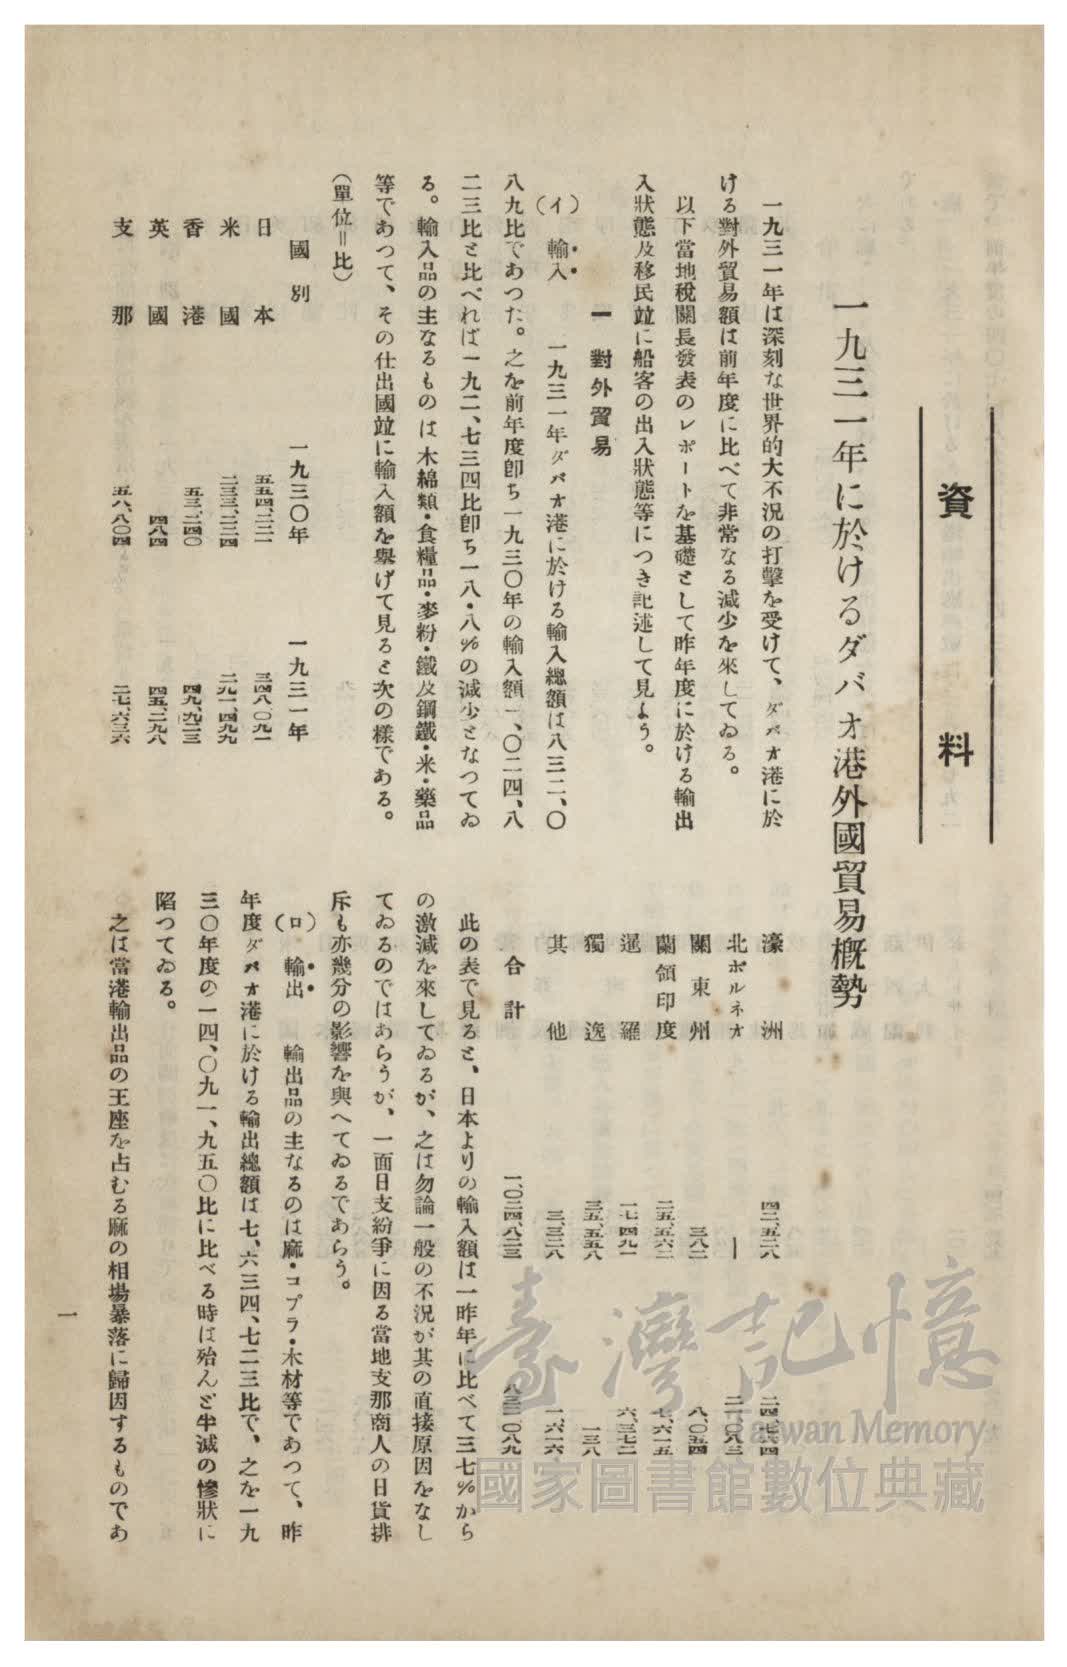 資料
一九三一年に於けるダバオ港外國貿易概勢
一九三一年は深刻な世界的大不況の打擊を受けて、ダバオ港に於
ける對外貿易額は前年度に比べて非常なる減少を來してゐる。
以下當地稅關長發表のレポートを基礎として昨年度に於ける輸出
入狀態及移民竝に船客の出入狀態等につき記述して見よう。
一 對外貿易
(イ) 輸入 一九三一年ダバオ港に於ける輸入總額は八三二、〇
八九比であつた。之を前年度卽ち一九三〇年の輸入額一、〇二四、八
二三比と比べれば一九二、七三四比卽ち一八・八％の減少となつてゐ
る。輸入品の主なるものは木綿類・食糧品・麥粉・鐵及鋼鐵・米・藥品
等であつて、その仕出國竝に輸入額を擧げて見ると次の樣である。
(單位＝比)
國別 一九三〇年 一九三一年
日本 五五四、二二一 三四八、〇九一
米國 二三三、二三四 二九一、四九九
香港 五三、二四〇 四九、九二三
英國 四八四 四五、二九八
支那 五六、八〇四 二七、六三六
濠洲 四二、五二八 二四、七六四
北ボルネオ ― 二一、〇八三
關東州 三八二 八、〇五四
蘭領印度 二五、五六二 七、六一五
暹羅 一七、四九一 六、三七二
獨逸 三五、五五八 一三八
其他 三、三二八 一、六一六
合計 一、〇二四、八二三 八三二、〇八九
此の表で見ると、日本よりの輸入額は一昨年に比べて三七％から
の激減を來してゐるが、之は勿論一般の不況が其の直接原因をなし
てゐるのではあらうが、一面日支紛爭に因る當地支那商人の日貨排
斥も亦幾分の影響を與へてゐるであらう。
(ロ) 輸出 輸出品の主なるのは麻・コプラ・木材等であつて、昨
年度ダバオ港に於ける輸出總額は七、六三四、七二三比で、之を一九
三〇年度の一四、〇九一、九五〇比に比べる時は殆んど半減の慘狀に
陷つてゐる。
之は當港輸出品の王座を占むる麻の相場暴落に歸因するものであ
一
臺灣記憶
Taiwan Memory
國家圖書館數位典藏